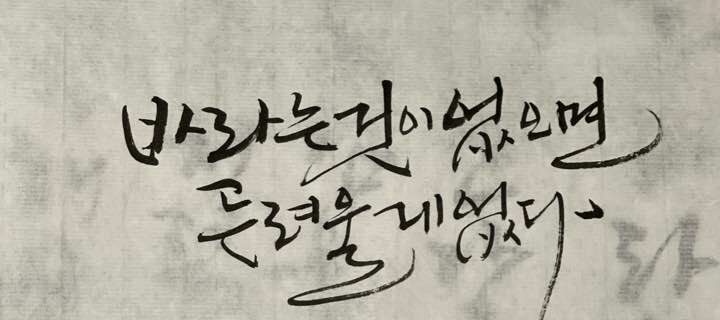 바라는 것이 없으면
두려울 게 없다.
라